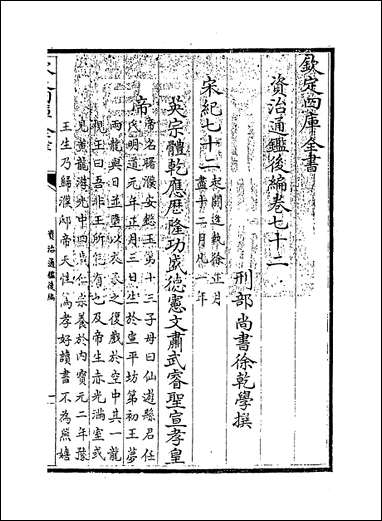 欽定四庫全書
資治通鑑後編卷七十二
刑部尚書徐乾學撰
宋紀七十二起閼逢執徐正月
盡十二月凡一年
英宗體乾應歷隆功盛德憲文肅武睿聖宣孝皇
帝
帝名曙濮安懿王第十三子母曰仙遊縣君任
氏明道元年正月三日生於宣平坊第初王夢
兩龍與日並墮以衣承之復戲於空中其一龍
視王曰吾非王所有也及帝生赤光滿室或
見黃龍游光中四歲仁宗養於內寶元二年豫
王生乃歸濮邸帝天性篤孝好讀書不為燕嬉
資治通鑑後編